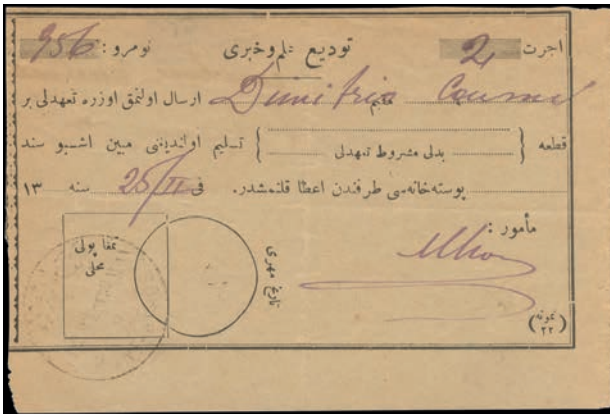 اجرت 2 توديع علم و خبرى نومرو : 956
Dimitrio مقيم ارسال اولنمق اوزره تعهدلى بر
قطعه { بدلى مشروط تعهدلى } تسليم اولنديغنى مبين اشبو سند
پوسته‌خانه‌سى طرفندن اعطا قلنمشدر. فى 25/II سنه ١٣
مأمور :
تمغا پولى محلى
تاريخ مهرى
(نمونه ٢٢)